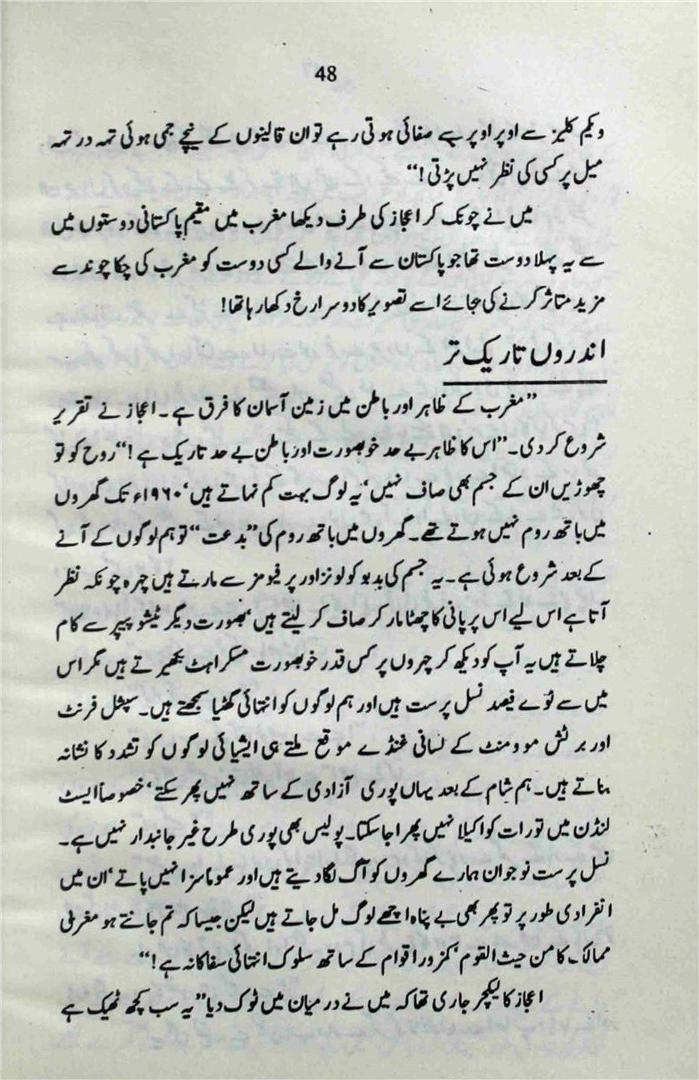 48
ویکیم کلینر سے اوپر اوپر سے صفائی ہوتی رہے تو ان قالینوں کے نیچے جمی ہوئی تہہ در تہہ
میل پر کسی کی نظر نہیں پڑتی!“
میں نے چونک کر اعجاز کی طرف دیکھا مغرب میں مقیم پاکستانی دوستوں میں
سے یہ پہلا دوست تھا جو پاکستان سے آنے والے کسی دوست کو مغرب کی چکا چوند سے
مزید متاثر کرنے کی جائے اسے تصویر کا دوسرا رخ دکھا رہا تھا!
اندروں تاریک تر
”مغرب کے ظاہر اور باطن میں زمین آسمان کا فرق ہے۔ اعجاز نے تقریر
شروع کر دی۔ ”اس کا ظاہر بے حد خوبصورت اور باطن بے حد تاریک ہے!“ روح کو تو
چھوڑیں ان کے جسم بھی صاف نہیں‘ یہ لوگ بہت کم نہاتے ہیں‘ ۱۹۶۰ء تک گھروں
میں باتھ روم نہیں ہوتے تھے۔ گھروں میں باتھ روم کی ”بدعت“ تو ہم لوگوں کے آنے
کے بعد شروع ہوئی ہے۔ یہ جسم کی بدبو کولونز اور پرفیومز سے مارتے ہیں چہرہ چونکہ نظر
آتا ہے اس لیے اس پر پانی کا چھٹا مار کر صاف کر لیتے ہیں‘ بصورت دیگر ٹیشو پیپر سے کام
چلاتے ہیں یہ آپ کو دیکھ کر چہروں پر کس قدر خوبصورت مسکراہٹ بکھیرتے ہیں مگر اس
میں سے نوے فیصد نسل پرست ہیں اور ہم لوگوں کو انتہائی گھٹیا سمجھتے ہیں۔ سپیشل فرنٹ
اور برٹش موومنٹ کے لسانی غنڈے موقع ملتے ہی ایشیائی لوگوں کو تشدد کا نشانہ
بناتے ہیں۔ ہم شام کے بعد یہاں پوری آزادی کے ساتھ نہیں پھر سکتے‘ خصوصاً ایسٹ
لنڈن میں تو رات کو اکیلا نہیں پھرا جا سکتا۔ پولیس بھی پوری طرح غیر جانبدار نہیں ہے۔
نسل پرست نوجوان ہمارے گھروں کو آگ لگا دیتے ہیں اور عموماً سزا نہیں پاتے‘ ان میں
انفرادی طور پر تو پھر بھی بے پناہ اچھے لوگ مل جاتے ہیں لیکن جیسا کہ تم جانتے ہو مغربی
ممالک کا من حیث القوم‘ کمزور اقوام کے ساتھ سلوک انتہائی سفاکانہ ہے!“
اعجاز کا لیکچر جاری تھا کہ میں نے درمیان میں ٹوک دیا ”یہ سب کچھ ٹھیک ہے